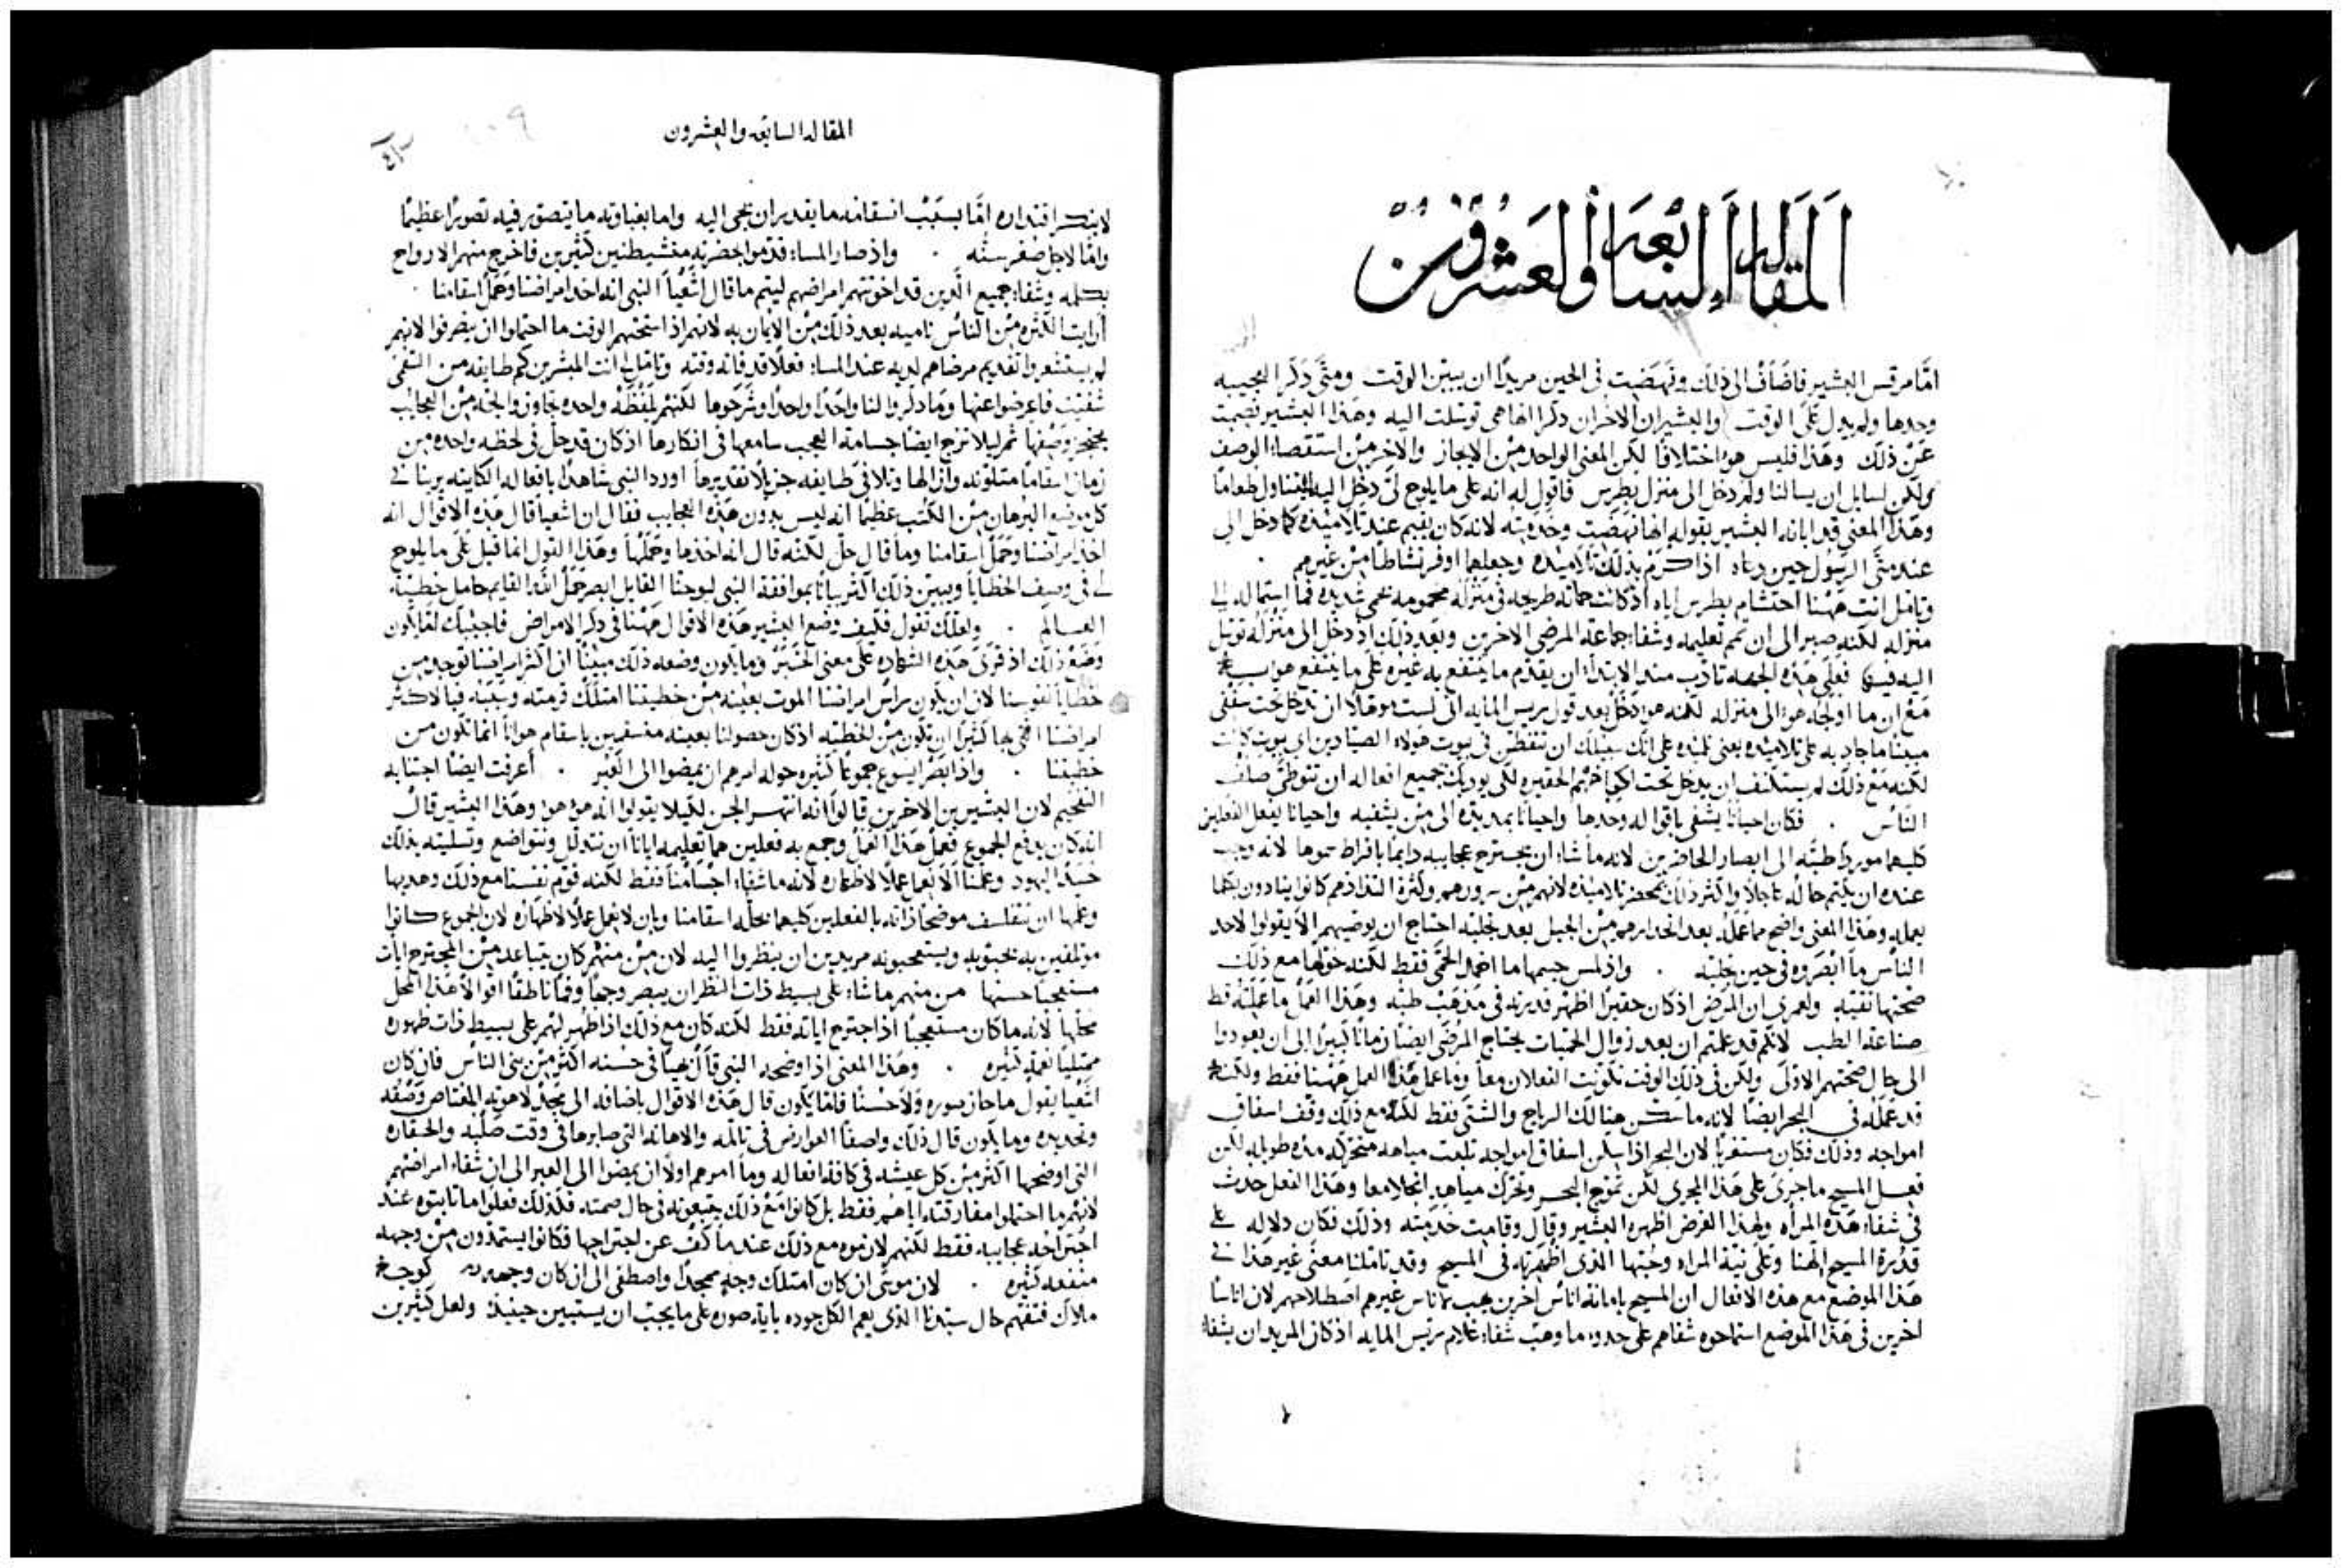 المقاله السابعه والعشرون
امّا مرقس البشير فاضاف الى ذلك ونهضت فى الحين مريدًا ان يبين الوقت ومتّى ذكر العجيبه
وحدها ولم يدل على الوقت والبشيران الاخران ذكرا انها هى توسلت اليه وهذا البشير بصمت
عن ذلك وهذا فليس هو اختلافًا لكن المعنى الواحد من الايجاز والاخر من استقصاء الوصف
ولكن لسايل ان يسالنا ولم دخل الى منزل بطرس فاقول له انه على ما يلوح لى دخل اليه ليتناول طعامًا
وهذا المعنى قد ابانه البشير بقوله انها نهضت وخدمته لانه كان يقيم عند تلاميذه كما دخل الى
عند متّى الرسول حين دعاه اذ اكرم بذلك تلاميذه وجعلهم اوفر نشاطًا من غيرهم
وتامل انت ههنا احتشام بطرس اياه اذ كانت حماته طريحه فى منزله محمومه بحمى شديده فما استماله الى
منزله لكنه صبر الى ان تمم تعليمه وشفاء جماعة المرضى الاخرين وبعد ذلك اذ دخل الى منزله توسل
اليه فيها فعلى هذه الجهه تادب منذ الابتداء ان يقدم ما ينتفع به غيره على ما ينتفع هو به
مع ان ما اولجه هو الى منزله لكنه هو دخل بعد قول ريس المايه انى لست موهلًا ان تدخل تحت سقفى
مبينًا ما جاد به على تلاميذه
لكنه مع ذلك لم يستنكف ان يدخل تحت اكواخهم الحقيره لكى يوديك بجميع افعاله ان تتوطى صلف
الناس فكان احيانًا يشفى باقواله وحدها واحيانًا بمد يده الى من يشفيه واحيانًا يفعل الفعلين
كليهما موردًا طبّه الى ابصار الحاضرين لانه ما شاء ان يجترح عجايبه دايمًا بافراط سموها لانه وجب
عنده ان يكتم حاله عاجلًا واكثر ذلك بمحضر تلاميذه لانهم من سرورهم وكثرة التذاذهم كانوا ينادون بكلما
يعمله وهذا المعنى واضح مما عمله بعد انحدارهم من الجبل بعد تجليه احتاج ان يوصيهم الا يقولوا لاحد
الناس ما ابصروه فى حين تجليه واذ لمس جسمها ما اخمد الحمى فقط لكنه خولها مع ذلك
صحتها نقيّه ولعمرى ان المرض اذ كان حقيرًا اظهر قدرته فى مذهب طبّه وهذا العمل ما عملته قط
صناعة الطب لانكم قد علمتم ان بعد زوال الحميات يحتاج المرضى ايضًا زمانًا كبيرًا الى ان يعودوا
الى حال صحتهم الاولى ولكن فى ذلك الوقت تكونت الفعلان معًا وما عمل هذا العمل ههنا فقط ولكنه
قد عمله فى البحر ايضًا لانه ما سكن هنالك الرياح والشتى فقط لكنه مع ذلك وقف اسفاق
امواجه وذلك فكان مستغربًا لان البحر اذا سكن اسفاق امواجه تلبث مياهه متحركه مده طويله لكن
فعل المسيح ما جرى على هذا المجرى لكن تموج البحر وتحرك مياهه انحلا معًا وهذا الفعل حدث
فى شفاء هذه المرأه ولهذا الغرض اظهره البشير وقال وقامت خدمته وذلك فكان دلاله على
قدرة المسيح الهنا وعلى نية المراه وحبها الذى اظهرته فى المسيح وقد تاملنا معنى غير هذا فى
هذا الموضع مع هذه الافعال ان المسيح بامانة اناس اخرين يهب لاناس غيرهم اصطلاحهم لان اناسًا
اخرين فى هذا الموضع استماحوه شفاهم على حدود ما وهب شفاء غلام ريس المايه اذ كان المريد ان يشفاه
المقاله السابعه والعشرون
لا ينكر اقتداره امّا بسبب اسقامه ما يقدر ان يجى اليه واما بغباوته ما يتصور فيه تصورًا عظيمًا
وامّا لاجل صغر سنّه واذ صار المساء قدموا لحضرته متشيطنين كثيرين فاخرج منهم الارواح
بكلمه وشفاء جميع الذين قد اخوتهم امراضهم ليتم ما قال اشعيا النبى انه اخذ امراضنا وحمل اسقامنا
ارايت الكثره من الناس ناميه بعد ذلك من الايمان به لانهم اذ استحثهم الوقت ما احتملوا ان ينصرفوا لانهم
لم يستشعروا تقديم مرضاهم لديه عند المساء فعلًا قد فاته وقته وتامل انت المبشرين كم طايفه من
شفيت فاعرضوا عنها وما ذكروا لنا واحدًا واحدًا وشرحوها لكنهم بلفظة واحده تجاوزوا لجة من العجايب
يعجز وصفها ثم ليلا تزج ايضًا جسامة العجب سامعها فى انكارها اذ كان قد حل فى لحظه واحده من
زمان اسقامًا متلونه وازالها اورد النبى شاهدًا بافعاله الكاينه يرينا فى
كل موضع البرهان من الكتب عظيمًا انه ليس بدون هذه العجايب فقال ان اشعيا قال هذه الاقوال انه
اخذ امراضنا وحمل اسقامنا وما قال حل لكنه قال انه اخذها وحملها وهذا القول انما قيل على ما يلوح
لى فى وصف الخطايا ويبين ذلك اكثر بيانًا بموافقة النبى ليوحنا القايل ابصر حمل الله القايم حامل خطية
العالم ولعلك تقول فكيف وضع البشير هذه الاقوال ههنا فى ذكر الامراض فاجيبك
وضع ذلك اذ قرى هذه الشهاده على معنى الخبر وما يكون وضعه ذلك مبينًا ان اكثر امراضنا توجد من
خطايا نفوسنا لان ان يكون راس امراضنا الموت بعينه من خطيتنا امتلك
خطيتنا واذ ابصر ايسوع جموعًا كثيره حوله امرهم ان يمضوا الى العبر أعرفت ايضًا اجتنابه
التفخيم لان البشيرين الاخرين قالوا انه انتهر الجن لكيلا يقولوا انه هو هو وهذا البشير قال
انه كان يدفع الجموع فعمل هذا العمل وجمع به فعلين هما تعليمه ايانا ان نتذلل ونتواضع وتسليته بذلك
حسد اليهود وعلمنا الا نعمل عملًا لاظهاره لانه ما شفاء اجسامنا فقط لكنه قوم نفسنا مع ذلك وهذبها
وعلمها ان تتفلسف موضحًا ذاته بالفعلين كليهما بحله اسقامنا وبان لا يعمل عملًا لاظهاره لان الجموع كانوا
ملتصقين به يحبونه ويستعجبونه مريدين ان ينظروا اليه لان من منهم كان يتباعد من المجترح ايات
مستعجبًا حسنها من منهم ما شاء على بسيط ذات النظر ان يبصر وجهًا وفمًا ناطقًا اقوالًا هذا المحل
محلها لانه ما كان مستعجبًا اذا اجترح اياته فقط لكنه كان مع ذلك اذا ظهر لهم على بسيط ذات ظهوره
ممتليًا نعمه كثيره وهذا المعنى اذ اوضحه النبى قال بهيًا فى حسنه اكثر من بنى الناس فان كان
اشعيا يقول ما حاز صوره ولا حسنًا فانما يكون قال هذه الاقوال باضافه الى مجد لاهوته المعتاص وصفه
وتحديده وما يكون قال ذلك واصفًا العوارض فى تالمه والاهانه التى صابرها فى وقت صلبه والحقاره
التى اوضحها اكثر من كل عيشه فى كافة افعاله وما امرهم اولًا ان يمضوا الى العبر الى ان شفاء امراضهم
لانهم ما احتملوا مفارقته اياهم فقط بل كانوا مع ذلك يتبعونه فى حال صمته
اجتراحه عجايبه فقط لكنهم لازموه مع ذلك عندما كف عن اجتراحها فكانوا يستمدون من وجهه
منفعه كثيره لان موسى ان كان امتلك وجه ممجدًا واصطفى الى ان كان وجهه كوجه
ملاك فتفهم حال سيدنا الذى يعم الكل جوده على ما يجب ان يستبين حينيذ ولعل كثيرين